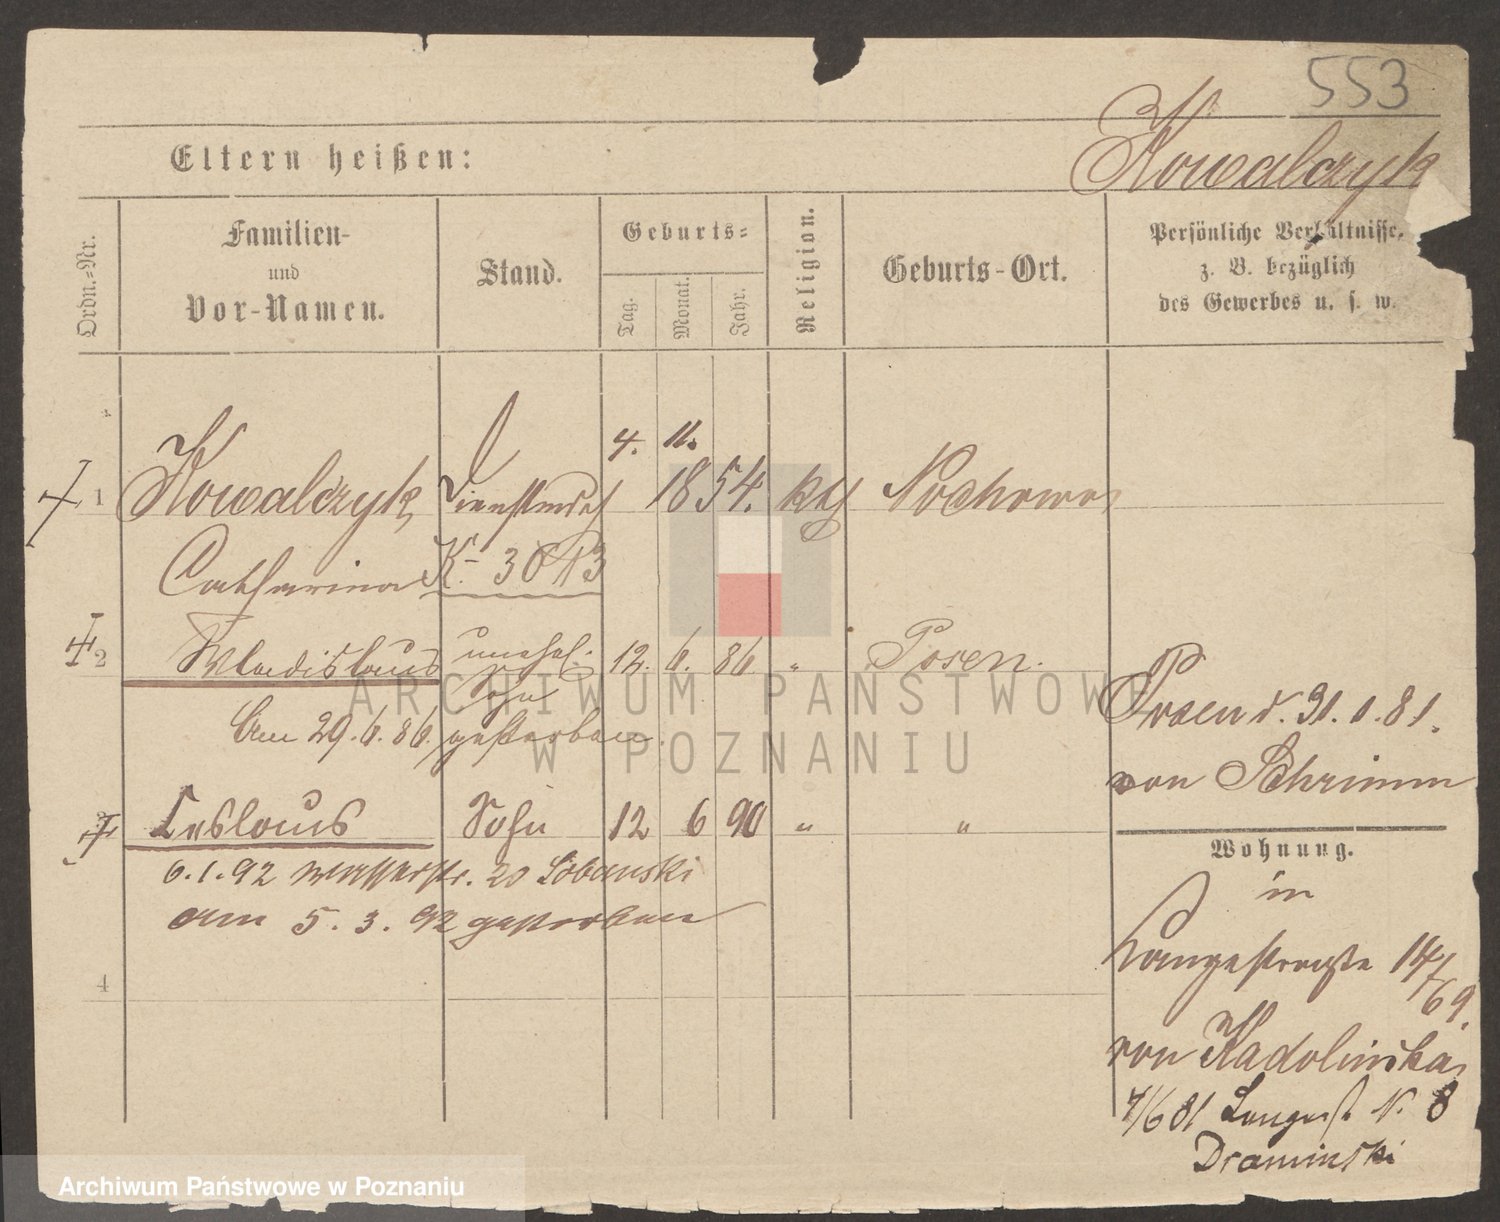 553
Kowalczyk
Eltern heißen:
Ordn.-Nr.
Familien-
und
Vor-Namen.
Stand.
Geburts-
Tag.
Monat.
Jahr.
Religion.
Geburts-Ort.
Persönliche Verhältnisse,
z. B. bezüglich
des Gewerbes u. s. w.
4. 11.
1 Kowalczyk 1854. kth Nochowo
Catharina
2 Wladislaus unehel. 12. 6. 86 " Posen.
Sohn
Am 29.6.86. gestorben.
3 Ceslaus Sohn 12 6 90 " "
6.1.92 Wasserstr. 20
am 5.3.92 gestorben
4
von Schrimm
Wohnung.
in
Langestraße 14/69.
von
4/6 81 Langestr N. 8
Draminski
ARCHIWUM PAŃSTWOWE
W POZNANIU
Archiwum Państwowe w Poznaniu